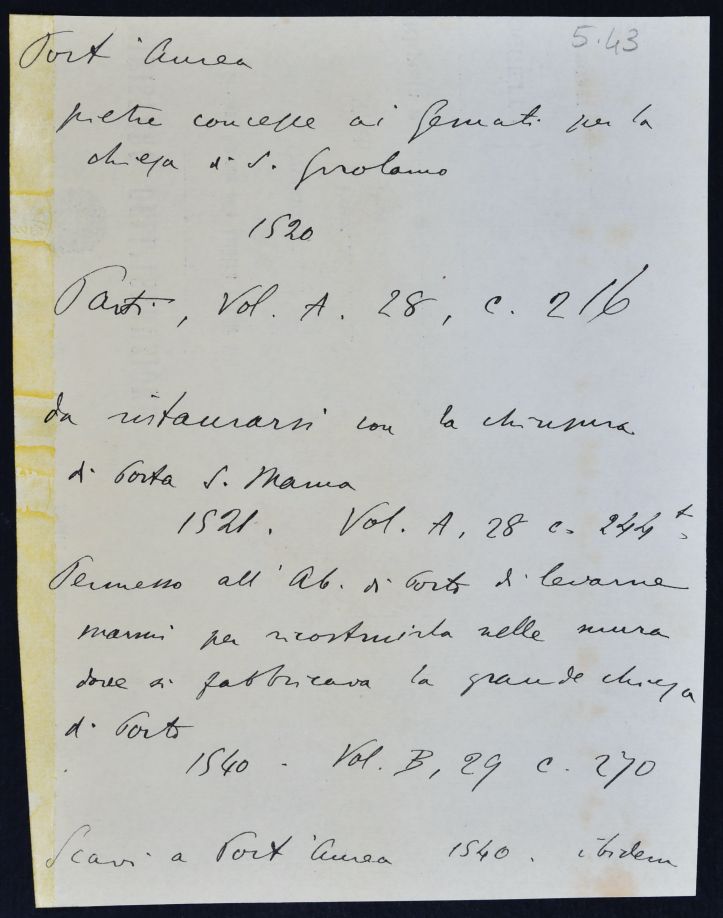 5.43
Port'Aurea
pietre concesse ai Gesuati per la
chiesa di S. Girolamo
1520
Parti, Vol. A. 28, c. 216
da ristaurarsi con la chiusura
di Porta S. Mama
1521. Vol. A, 28 c. 244 t.
Permesso all'Ab. di Porto di levarne
marmi per ricostruirla nelle mura
dove si fabbricava la grande chiesa
di Porto
1540 - Vol. B, 29 c. 270
Scavi a Port'Aurea 1540. ibidem